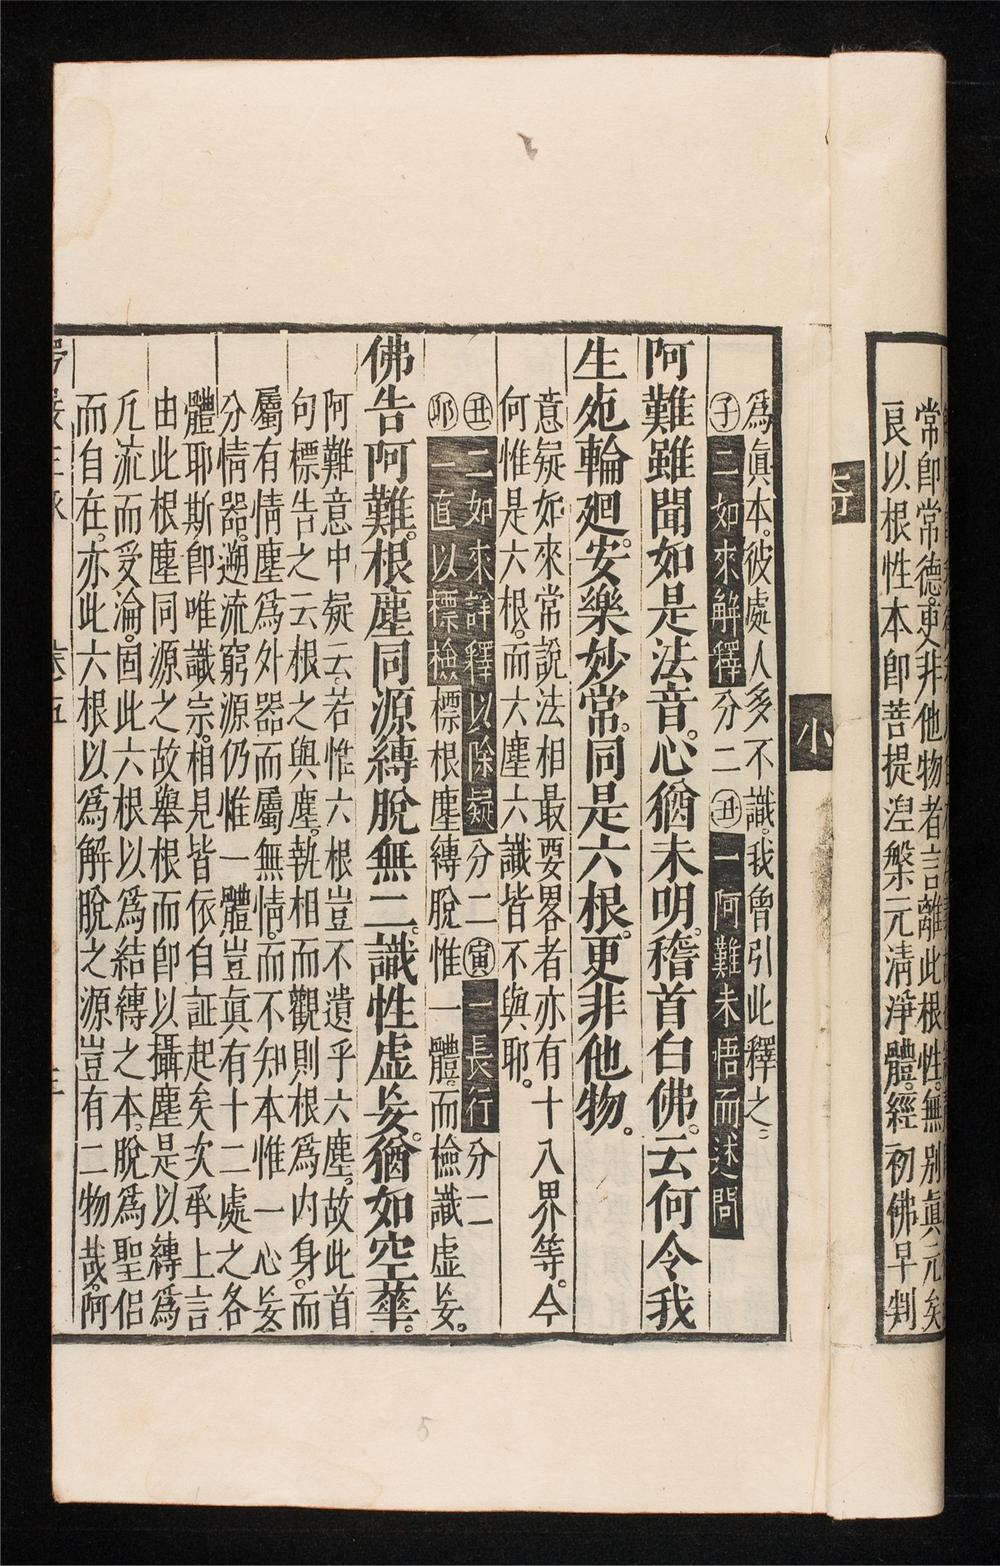 常卽常德。更非他物者言離此根性。無别眞元矣
良以根性本卽菩提涅槃元淸淨體。經初佛早判
小
爲眞本。彼處人多不識。我曾引此釋之。
子二如來解釋分二丑一阿難未悟而述問
阿難雖聞如是法音。心猶未明。稽首白佛。云何令我
生死輪廻。安樂妙常。同是六根。更非他物。
意疑如來常說法相最要界者亦有十八界等。今
何惟是六根。而六塵六識皆不與耶。
丑二如來詳釋以除疑分二寅一長行分二
卯一直以標檢標根塵縛脫惟一體。而檢識虛妄。
佛告阿難。根塵同源縛脫無二。識性虛妄。猶如空華。
阿難意中疑云。若惟六根豈不遺乎六塵。故此首
句標告之云根之與塵。執相而觀則根爲內身。而
屬有情塵爲外器而屬無情。而不知本惟一心妄
分情器。遡流窮源仍惟一體豈眞有十二處之各
體耶斯卽唯識宗。相見皆依自証起矣次承上言
由此根塵同源之故擧根而卽以攝塵是以縛爲
凡流而受淪。固此六根以爲結縛之本。脫爲聖侣
而自在。亦此六根以爲解脫之源豈有二物哉。阿